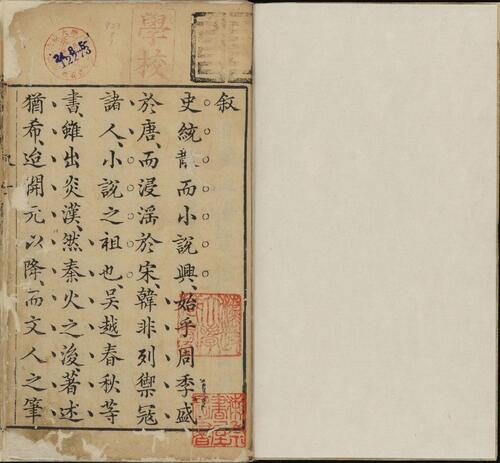 學校
叙
史統散而小說興、始乎周季、盛
於唐、而浸滛於宋、韓非列禦冦
諸人、小說之祖也、吳越春秋等
書、雖出炎漢、然秦火之後、著述
猶希、迨開元以降、而文人之筆